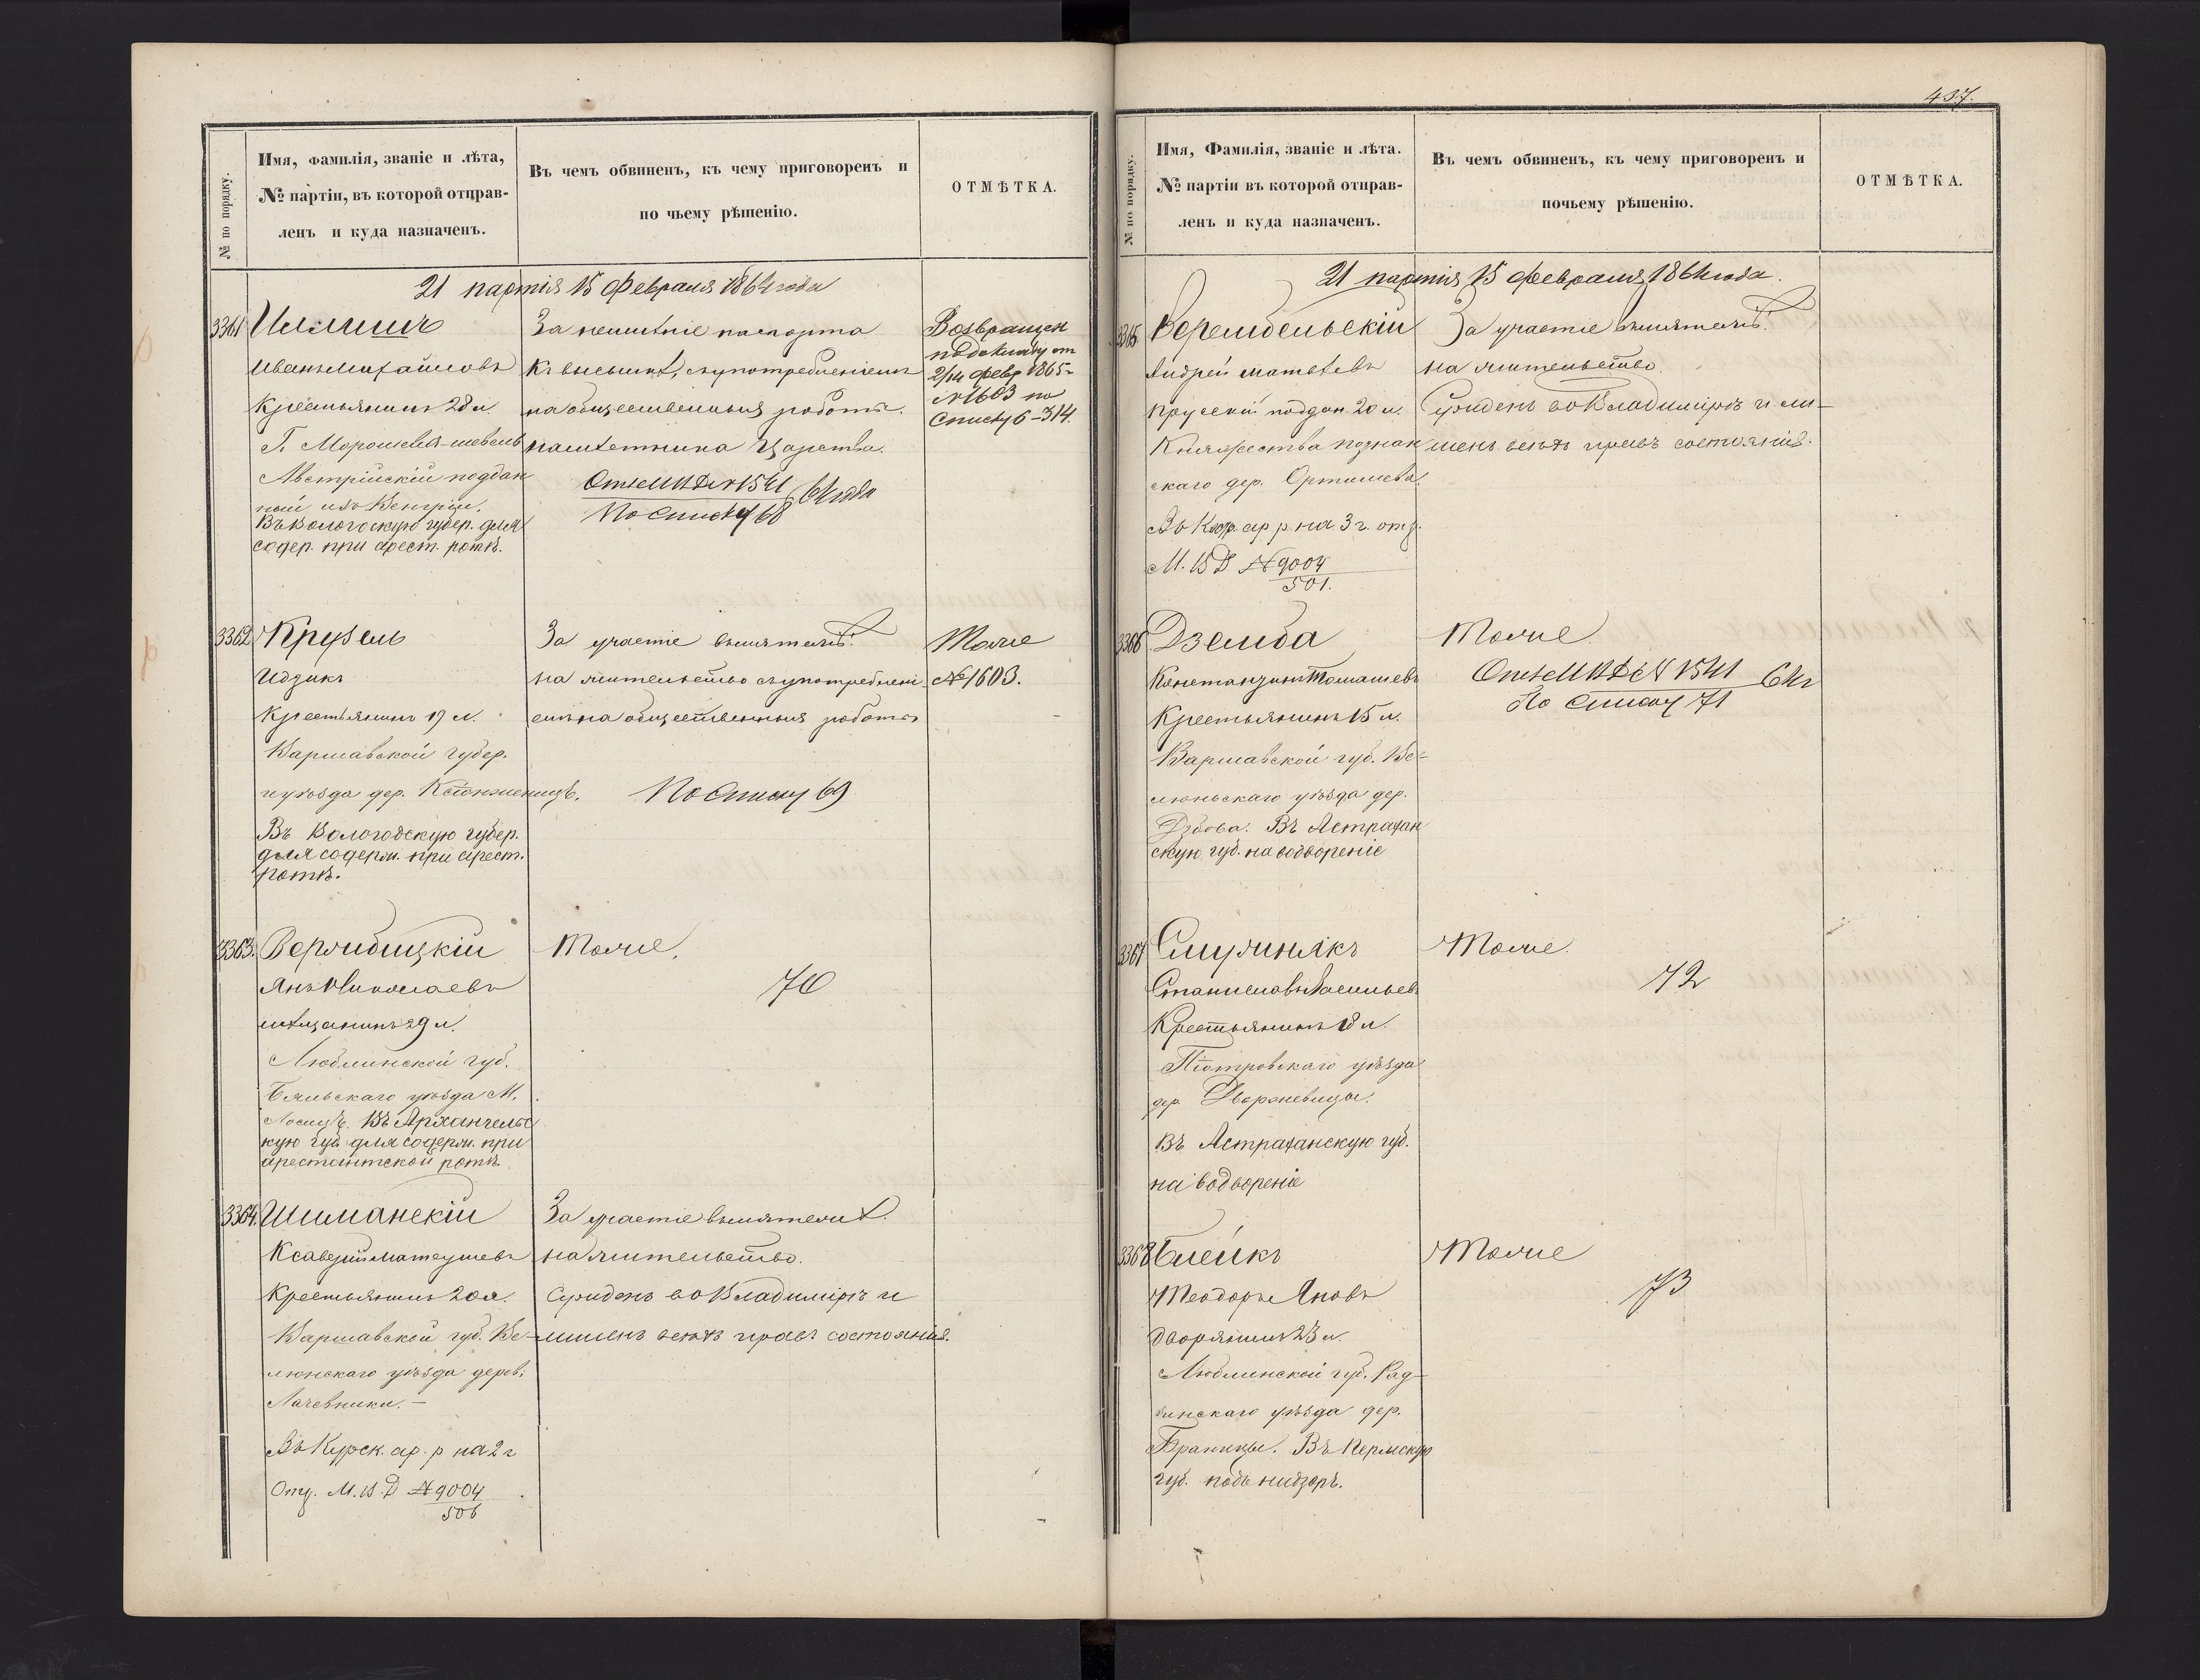 437.
№ по порядку.
Имя, фамилія, званіе и лѣта,
№ партіи, въ которой отправ-
ленъ и куда назначенъ.
Въ чемъ обвиненъ, къ чему приговоренъ и
по чьему рѣшенію.
ОТМѢТКА.
21 партія 15 Февраля 1864 года
3361
Иванъ Михайловъ
Крестьянинъ 28 л.
Австрійскій поддан
ный изъ Венгріи.
Въ Вологодскую губер. для
содер. при арест. ротѣ.
За неимѣніе паспорта
къ высылкѣ, съ употребленіемъ
на общественныя работы.
Царства.
Отн. М В Д № 1541 / 64 года
По списку 68
Возвращен
по докладу от
2/14 февр 1865
№ 1603 по
списку 6-314.
3362
Крузель
Идзикъ
Крестьянинъ 19 л.
Варшавской губер.
уѣзда дер.
Въ Вологодскую губер.
для содерж. при арест.
ротѣ.
За участіе въ мятежѣ.
на жительство съ употреблені-
емъ на общественныя работы
По списку 69
Тоже
№ 1603.
3363.
Вержбицкій
Янъ Николаевъ
мѣщанинъ 29 л.
Люблинской губ.
Бяльскаго уѣзда М.
Лосицъ. Въ Архангельс
кую губ. для содерж. при
арестантской ротѣ.
Тоже.
70
3364.
Шиманскій
Ксаверій Матеушевъ
Крестьянинъ 20 л.
Варшавской губ. Ве-
люнскаго уѣзда дерев.
Въ Курск. ар. р на 2 г
Отз. М. В. Д № 9004
506
За участіе въ мятежѣ.
на жительство.
Сужденъ во Владимірѣ и
лишенъ всѣхъ правъ состоянія.
№ по порядку.
Имя, Фамилія, званіе и лѣта.
№ партіи въ которой отправ-
ленъ и куда назначенъ.
Въ чемъ обвиненъ, къ чему приговоренъ и
почьему рѣшенію.
ОТМѢТКА.
21 партія 15 февраля 1864 года.
3365.
Андрей Матвѣевъ
прусскій поддан. 20 л.
Княжества познан
скаго дер.
ар р на 3 г. отз.
М. В Д № 9004
501.
За участіе въ мятежѣ.
на жительство.
Сужденъ во Владимірѣ и ли-
шенъ всѣхъ правъ состоянія.
3366
Дземба
Константинъ Томашевъ
Крестьянинъ 15 л.
Варшавской губ. Ве-
люньскаго уѣзда дер.
Въ Астрахан
скую губ. на водвореніе
Тоже
Отн. М В Д № 1541 / 64 г
По списку 71
3367
Станиславъ
Крестьянинъ 18 л.
Піотровскаго уѣзда
дер.
Въ Астраханскую губ.
на водвореніе
Тоже.
72
3368
Блейкъ
Теодоръ Яновъ
дворянинъ 23 л.
Люблинской губ. Рад-
зинскаго уѣзда дер.
Браницы. Въ Пермскую
губ. подъ надзоръ.
Тоже
73